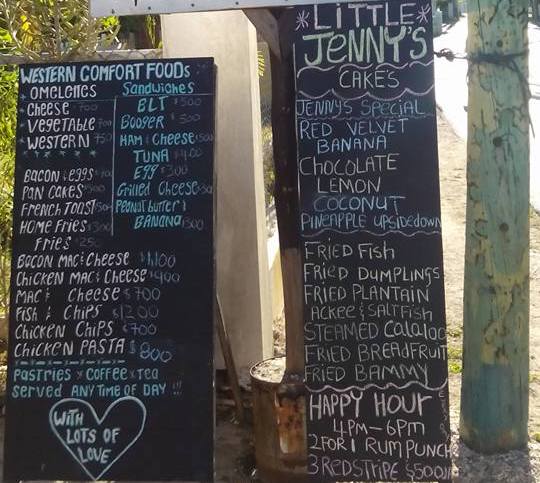 WESTERN COMFORT FOODS
OMELETTES
CHEESE 700
VEGETABLE 700
WESTERN 750
BACON & EGGS
PAN CAKES
FRENCH TOAST
HOME FRIES $300
FRIES $250
Sandwiches
BLT $500
BOOGER $500
HAM & CHEESE
TUNA $400
EGG $300
Grilled CHEESE
PEANUT BUTTER &
BANANA $300
BACON MAC & CHEESE $1,100
CHICKEN MAC & CHEESE $900
MAC & CHEESE $700
FISH & CHIPS $1200
CHICKEN CHIPS $700
CHICKEN PASTA $800
PASTRIES x COFFEE x TEA
SERVED ANY TIME OF DAY !!!
WITH
LOTS OF
LOVE
*LITTLE*
JENNY'S
CAKES
JENNY'S SPECIAL
RED VELVET
BANANA
CHOCOLATE
LEMON
COCONUT
PINEAPPLE UPSIDEDOWN
FRIED FISH
FRIED DUMPLINGS
FRIED PLANTAIN
ACKEE & SALTFISH
STEAMED CALALOO
FRIED BREADFRUIT
FRIED BAMMY
HAPPY HOUR
4PM-6PM
2 FOR 1 RUM PUNCH
3 REDSTRIPE $500